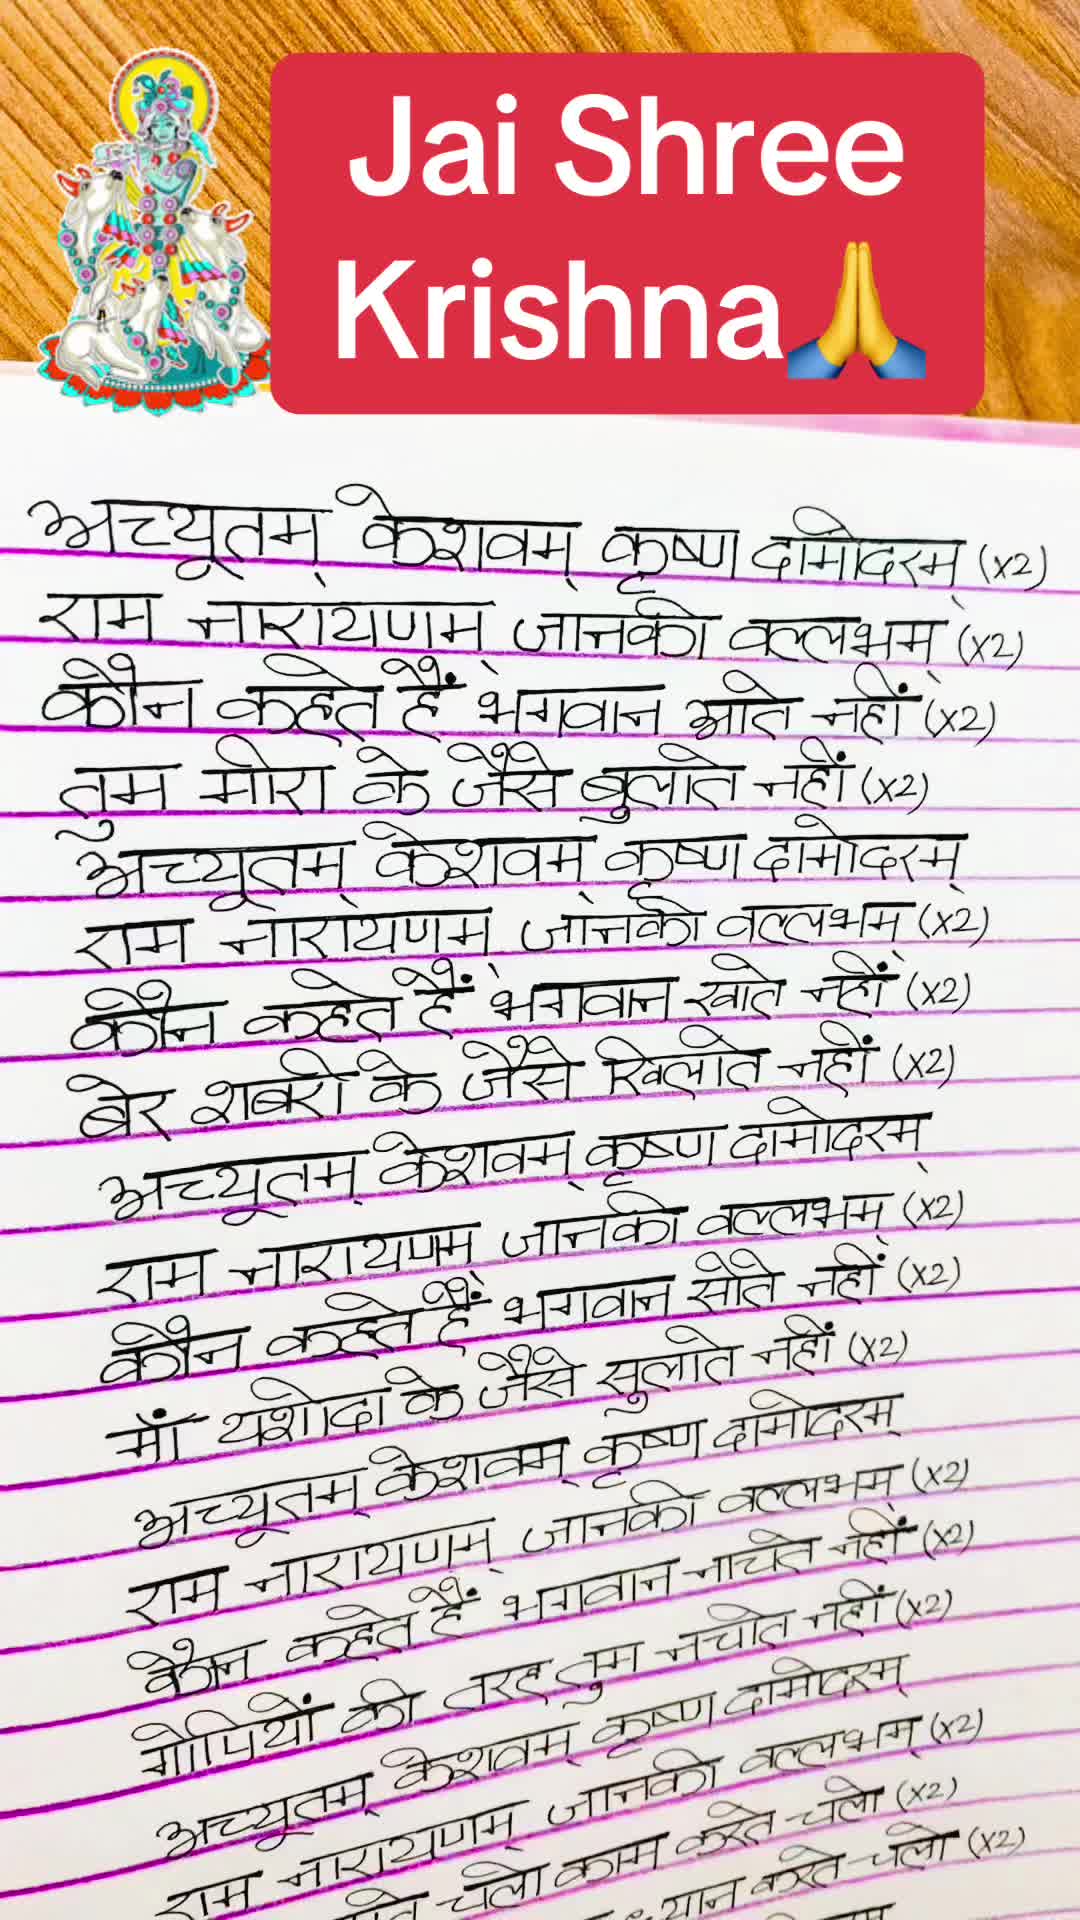 Jai Shree
Krishna🙏
अच्यूतम् केशवम् कृष्ण दामोदरम् (x2)
राम नारायणम् जानकी वल्लभम् (x2)
कौन कहेते हैं भगवान आते नहीं (x2)
तुम मीरा के जैसे बुलाते नहीं (x2)
अच्यूतम् केशवम् कृष्ण दामोदरम्
राम नारायणम् जानकी वल्लभम् (x2)
कौन कहेते हैं भगवान खाते नहीं (x2)
बेर शबरी के जैसे खिलाते नहीं (x2)
अच्यूतम् केशवम् कृष्ण दामोदरम्
राम नारायणम् जानकी वल्लभम् (x2)
कौन कहते हैं भगवान सोते नहीं (x2)
माँ यशोदा के जैसे सुलाते नहीं (x2)
अच्यूतम् केशवम् कृष्ण दामोदरम्
राम नारायणम् जानकी वल्लभम् (x2)
कौन कहेते हैं भगवान नाचते नहीं (x2)
गोपियों की तरह तुम नचाते नहीं (x2)
अच्यूतम् केशवम् कृष्ण दामोदरम्
राम नारायणम् जानकी वल्लभम् (x2)
चलो काम करते चलो (x2)
ध्यान करते चलो (x2)